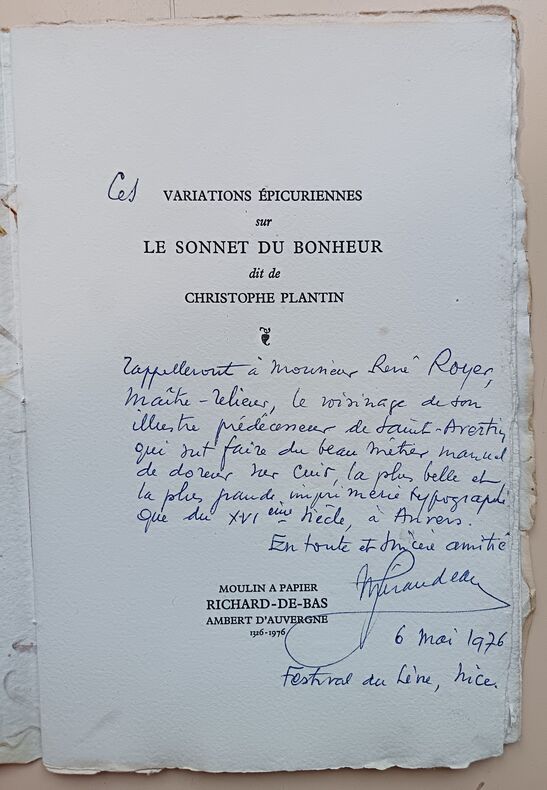 Ces VARIATIONS ÉPICURIENNES
sur
LE SONNET DU BONHEUR
dit de
CHRISTOPHE PLANTIN
rappelleront à Monsieur René Royer,
Maître-relieur, le voisinage de son
illustre prédécesseur de Saint-Avertin
qui sut faire du beau métier manuel
de doreur sur cuir, la plus belle et
la plus grande imprimerie typographi
que du XVI ème siècle, à Anvers.
En toute et sincère amitié
MOULIN A PAPIER
RICHARD-DE-BAS
AMBERT D'AUVERGNE
1326-1976
6 Mai 1976
Festival du Livre, Nice.